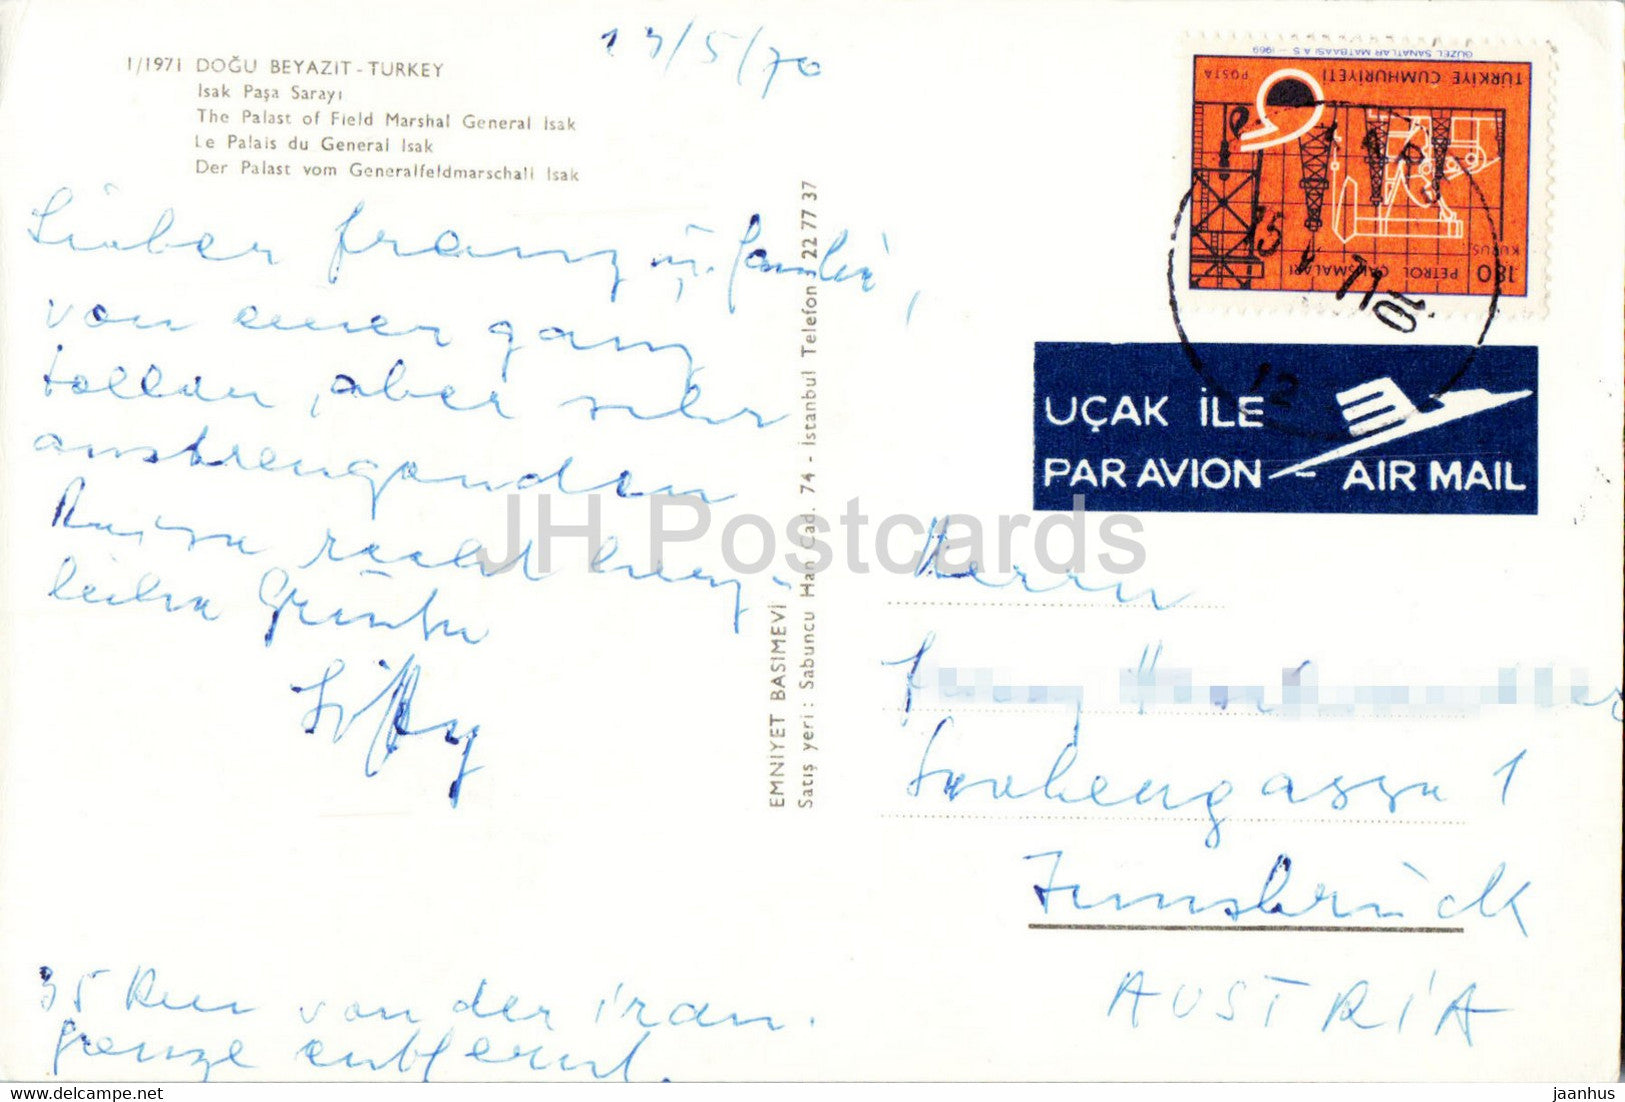 1/1971 DOĞU BEYAZIT - TURKEY
Isak Paşa Sarayı
The Palast of Field Marshal General Isak
Le Palais du General Isak
Der Palast vom Generalfeldmarschall Isak
17/5/70
Lieber Franz u. Familie,
von einer ganz
tollen, aber sehr
anstrengenden
Reise recht herz-
liche Grüße
35 km von der iran.
Grenze entfernt.
EMNIYET BASIMEVİ
Satış yeri : Sabuncu Han Cad. 74 - İstanbul Telefon 22 77 37
GÜZEL SANATLAR MATBAASI A.S. - 1969
TÜRKİYE CUMHURİYETİ
POSTA
180 KURUŞ
PETROL ÇALIŞMALARI
15
71
10
12
UÇAK İLE
PAR AVION - AIR MAIL
Herrn
gasse 1
Innsbruck
AUSTRIA
JH Postcards
Delcampe.net
jaanhus